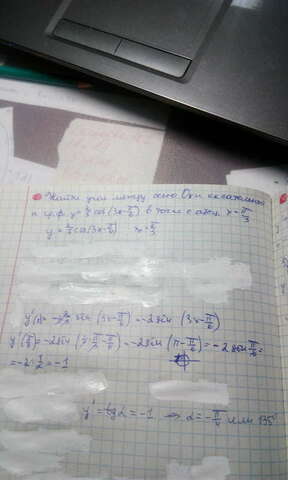 Найти угол между осью Ox и касательной
к гр. ф. y = 2/3 cos(3x - π/6) в точке с абсц. x = π/3
y = 2/3 cos(3x - π/6) x = π/3
y'(x) = -3·2/3 sin(3x - π/6) = -2sin(3x - π/6)
y'(π/3) = -2sin(3·π/3 - π/6) = -2sin(π - π/6) = -2sin π/6 =
= -2·1/2 = -1
y' = tg α = -1 ⇒ α = -π/4 или 135°